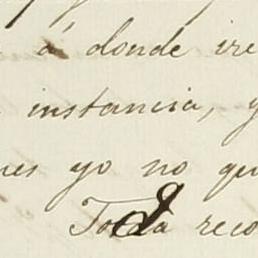 á donde ire
instancia, y
yo no qu
Toda reco